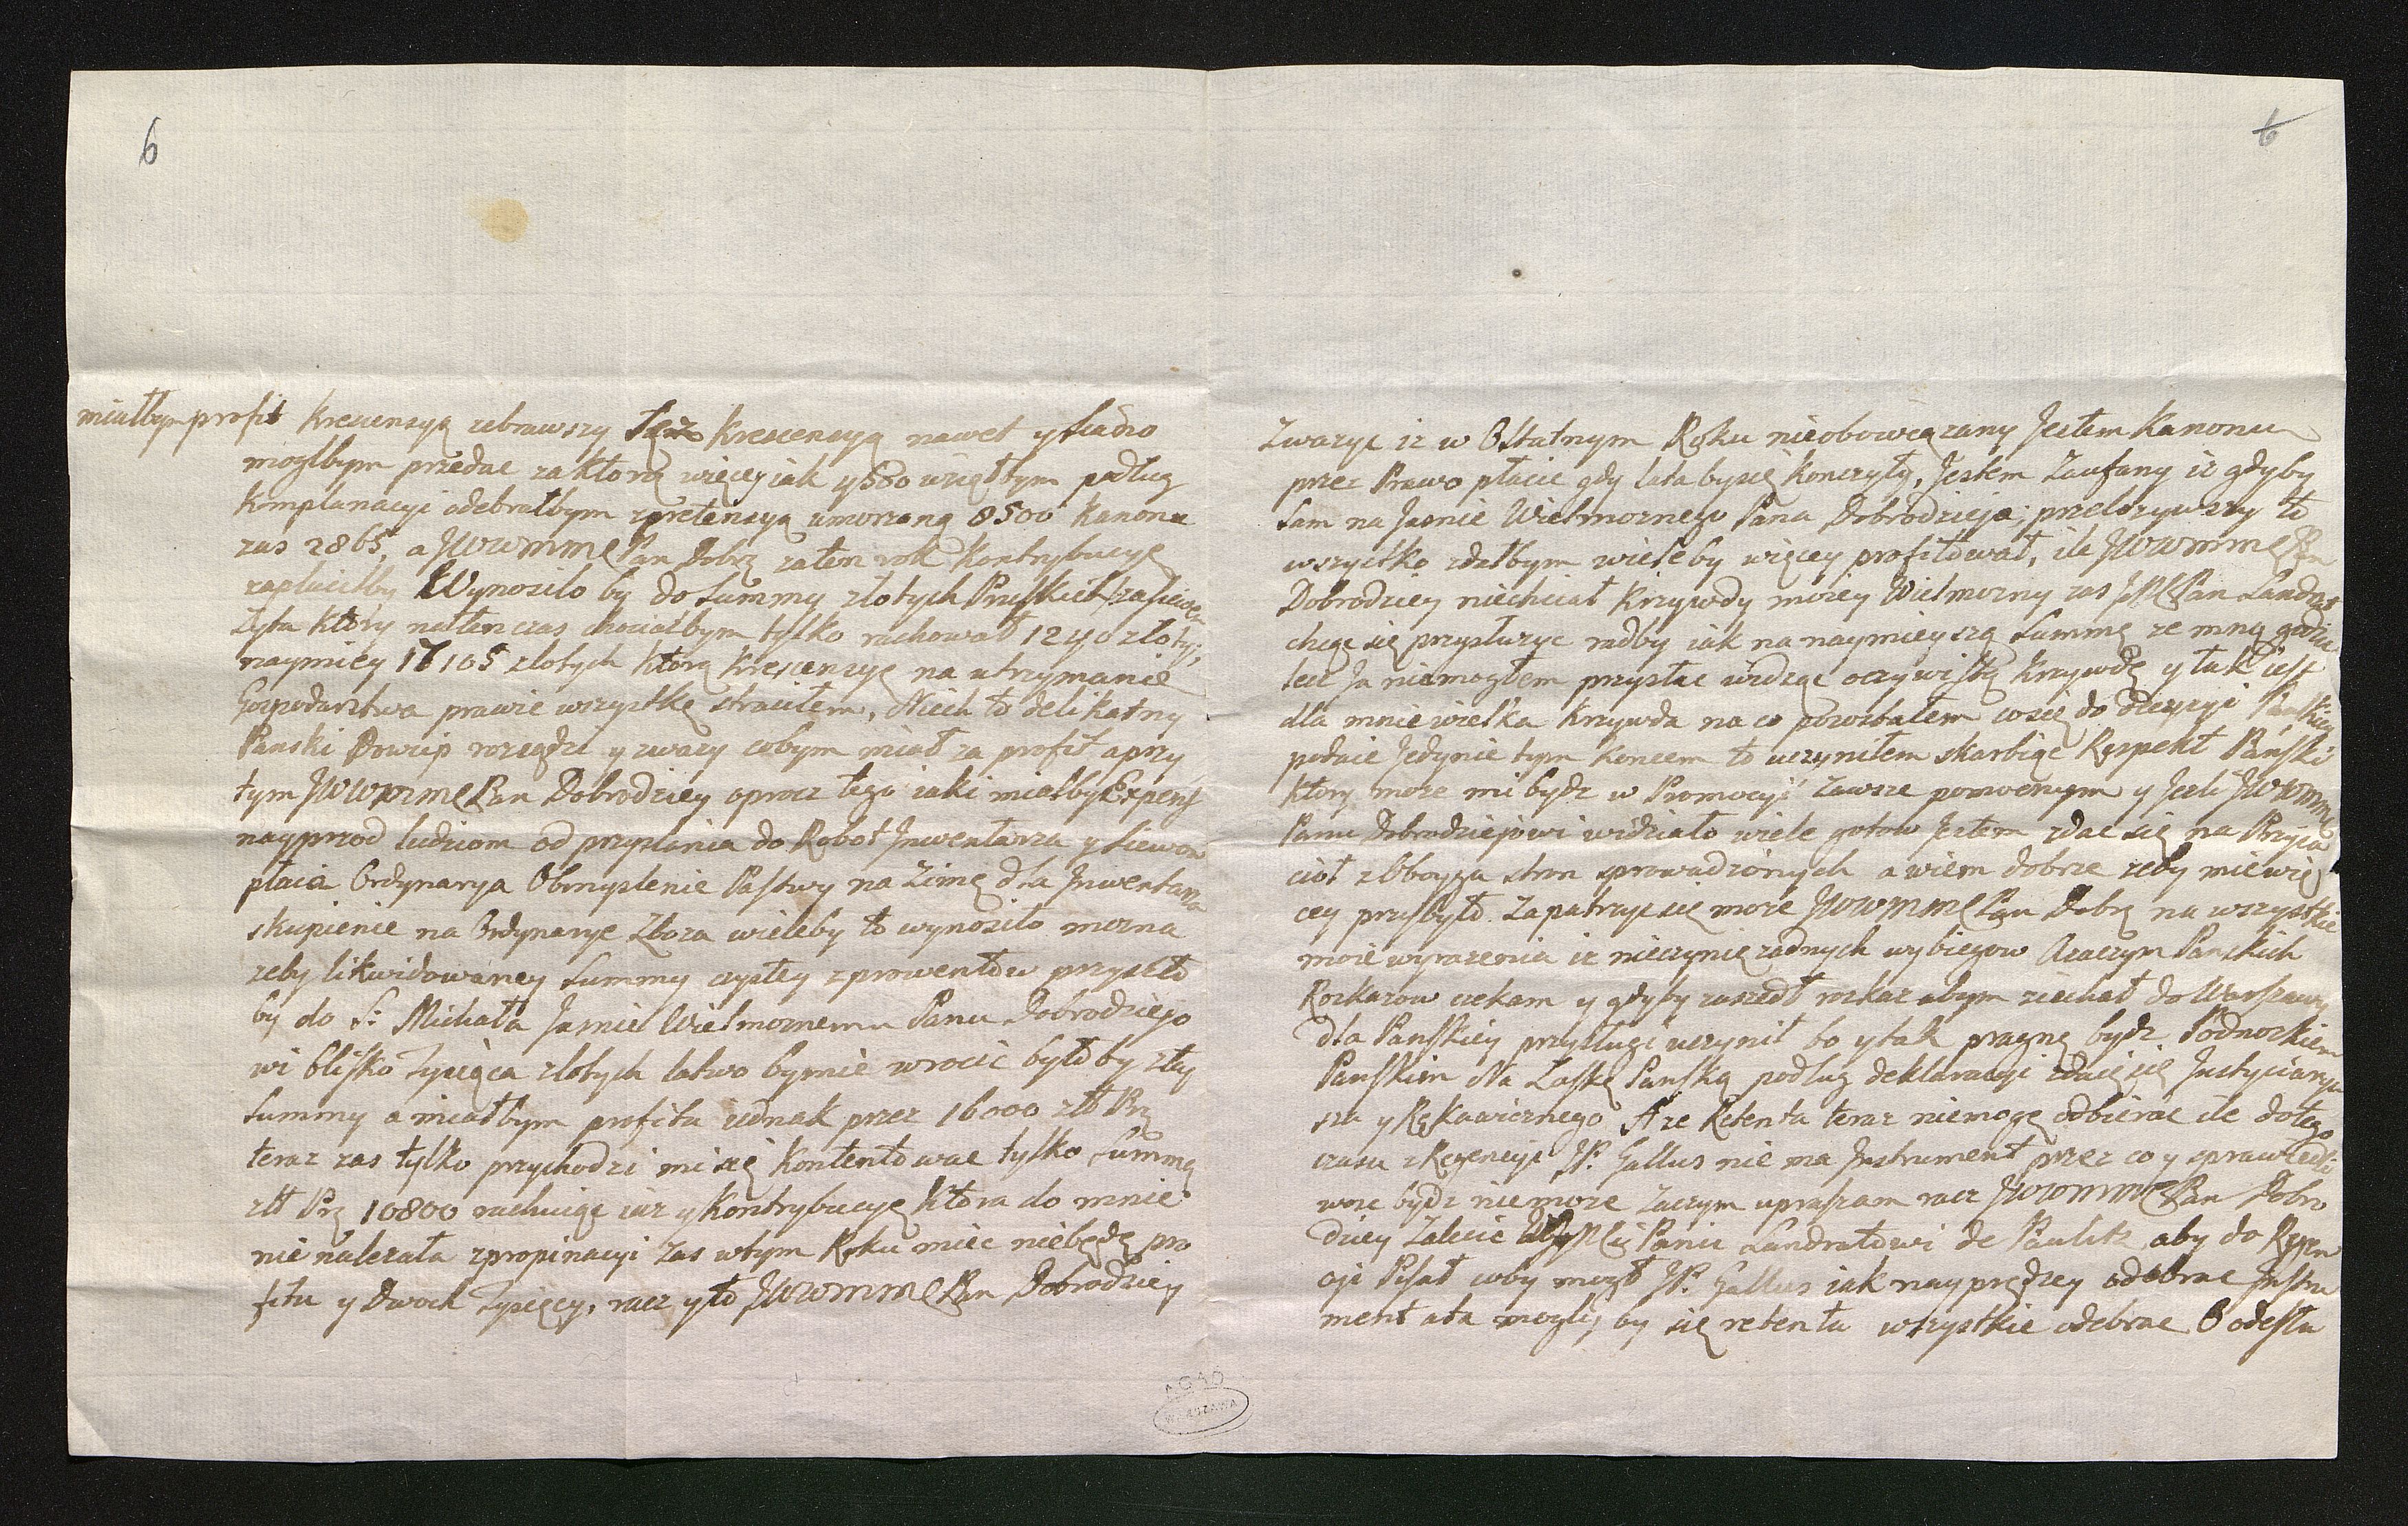 6
miałbym profit Krescensyą zebrawszy Tęż Krescencyą nawet y siadło
moglbym przedac za ktorą więcey iak 4500 wziąłbym podług
Komplanacyi odebrałbym zpretensyą umorzoną 8500 Kanonu
zas 2865, a JWWMM Pan Dobrz zaten rok Kontrybucyę
zapłaciłby Wynosiło by do Summy złotych Pruskich
Zyta Który natenczas chociałbym tylko rachował 1240 złoty,
naymiey 17105 zlotych Którą Krescensyę na utrzymanie
Gospodarstwa prawie wszystkę straciłem, Niech to delikatny
Panski Dowcip rozsądzi y zwazy cobym miał za profit aprzy
tym JWWMM Pan Dobrodziey oprocz tego iaki miałby Expens
nayprzod ludziom od przysłania do Robot Inwentarza y Siewow
płaca Ordynarya Obmyslenie Pastwy na Zimę dla Inwentarza
skupienie na Ordynarye Zboza wieleby to wynosiło mozna
zeby likwidowaney Summy czystey zprowentow przyszło
by do S: Michała Jasnie Wielmoznemu Panu Dobrodziejo
wi blisko Tysięca złotych łatwo bymie wrocic było by ztey
Summy a miałbym profitu iednak przez 16000 złt Prz
teraz zas tylko przychodzi mi się Kontentowac tylko Summą
złt Prz 10800 rachuiąc iuz y Kontrybucyę Ktora do mnie
nie nalezała zpropinacyi zas wtym Roku miec niebędę pro
fitu y Dwoch Tysięcy, racz yto JWWMM Pan Dobrodziey
6
Zwazyc iz w Ostatnym Roku nieobowięzany Jestem Kanonu
przez Prawo płacic gdy lata bysię konczyły, Jestem Zaufany iz gdyby
Sam na Jasnie Wielmoznego Pana Dobrodzieja, przelozywszy to
wszystko zdałbym wiele by więcey profitował, ile JWWMM Pan
Dobrodziey niechciał Krzywdy moiey Wielmozny zas JMC Pan Landrat
chcąc się przysłuzyc radby iak na naymieyszą Summę ze mną godzic
lecz Ja niemogłem przystac widząc oczywistą Krzywdę y tak iest
dla mnie wielka Krzywda na co pozwoliłem cosię do decyzyi Panskiey
podaie Jedynie tym Koncem to uczyniłem skarbiąc Respekt Panski
Ktory moze mi bydz w Promocyi Zawsze pomocnym y Jesli JWWMM
Panu Dobrodziejowi widziało wiele gotow Jestem zdac się na Przyia
cioł zOboyga stron sprowadzonych a wiem dobrze zeby mie wię
cey przybyło. Zapatrzyc się moze JWWMM Pan Dobrz na wszystkie
moie wyrazenia iz nieczynię zadnych wybiegow Azaczym Panskich
Rozkazow czekam y gdyby zaszedł rozkaz abym ziechał do Warszawy
dla Panskiey przysługi uczynił bo y tak pragnę bydz Podnozkiem
Panskim Na Łaskę Panską podług deklaracyi zdaię się Justyciarju
sza y Rękawicznego A ze Retenta teraz niemogę odbierac ile dotego
czasu zRegencyi JP. Gallus nie ma Instrument przez co y sprawiedli
wosc bydz niemoze Zaczym upraszam racz JWWMM Pan Dobro
dziey Zalecic Panu Landratowi de Paulitz aby do Regen
cyi Pisał coby mogł JP. Gallus iak nayprędzey odebrac Instru
ment ata mogły by się retenta wszystkie odebrac O odesła
AGAD
WARSZAWA